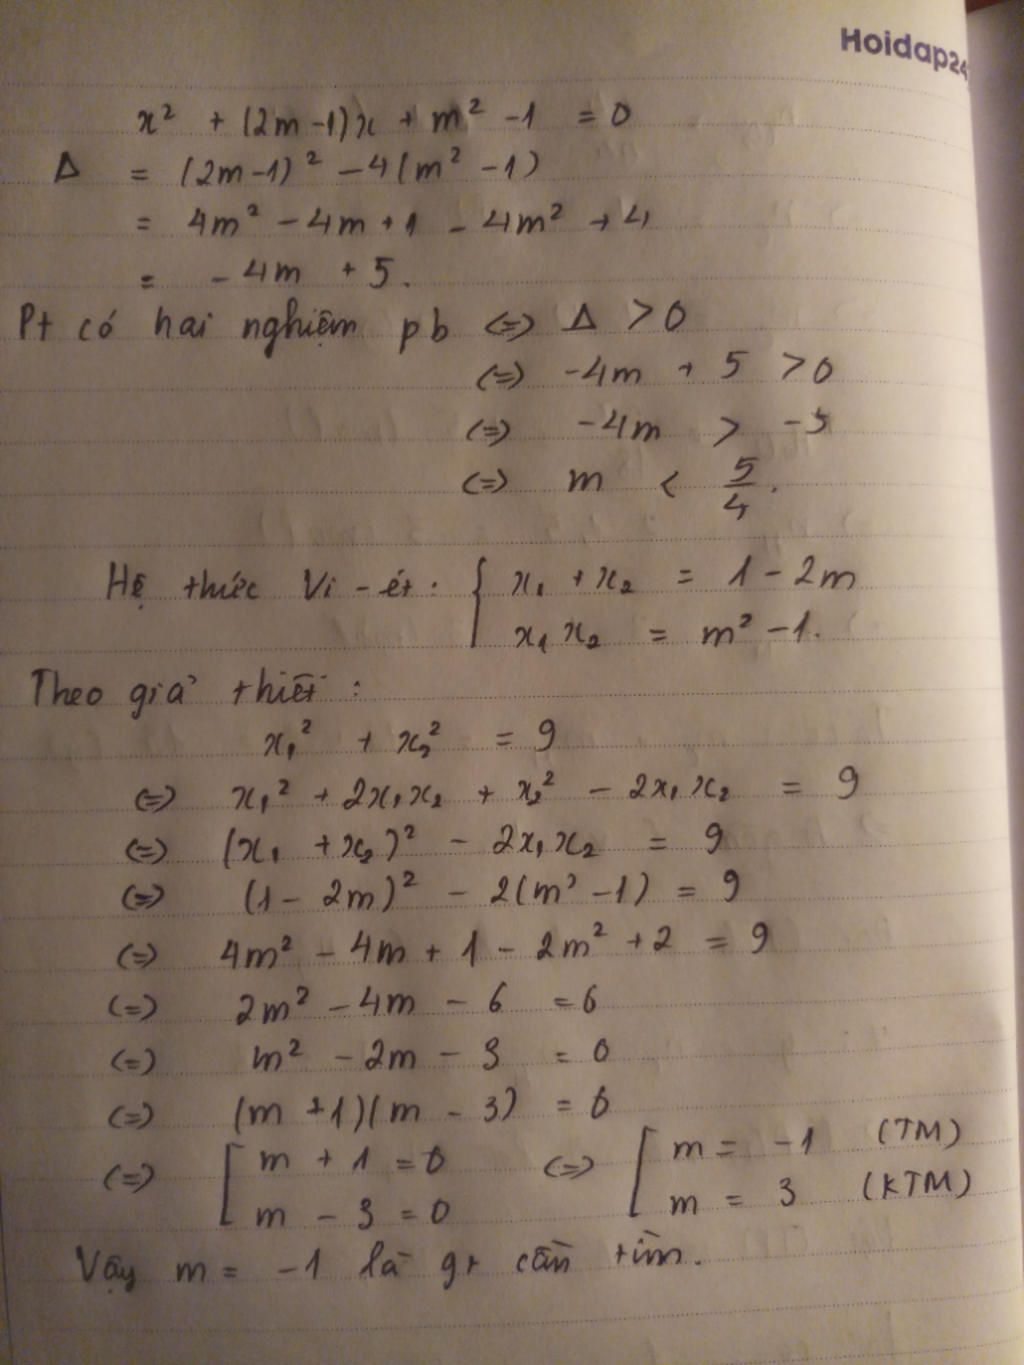 Hoidap24
x² + (2m -1)x + m² -1 = 0
Δ = (2m-1)² - 4(m² -1)
= 4m² - 4m + 1 - 4m² + 4
= - 4m + 5.
Pt có hai nghiệm pb (=) Δ > 0
(=) -4m + 5 > 0
(=) -4m > -5
(=) m < 5/4.
Hệ thức Vi-ét: { x₁ + x₂ = 1 - 2m
x₁ x₂ = m² - 1.
Theo giả thiết:
x₁² + x₂² = 9
(=) x₁² + 2x₁x₂ + x₂² - 2x₁x₂ = 9
(=) (x₁ + x₂)² - 2x₁x₂ = 9
(=) (1 - 2m)² - 2(m² -1) = 9
(=) 4m² - 4m + 1 - 2m² + 2 = 9
(=) 2m² - 4m - 6 = 6
(=) m² - 2m - 3 = 0
(=) (m + 1)(m - 3) = 0
(=) [ m + 1 = 0 (=) [ m = -1 (TM)
m - 3 = 0 m = 3 (KTM)
Vậy m = -1 là gt cần tìm.